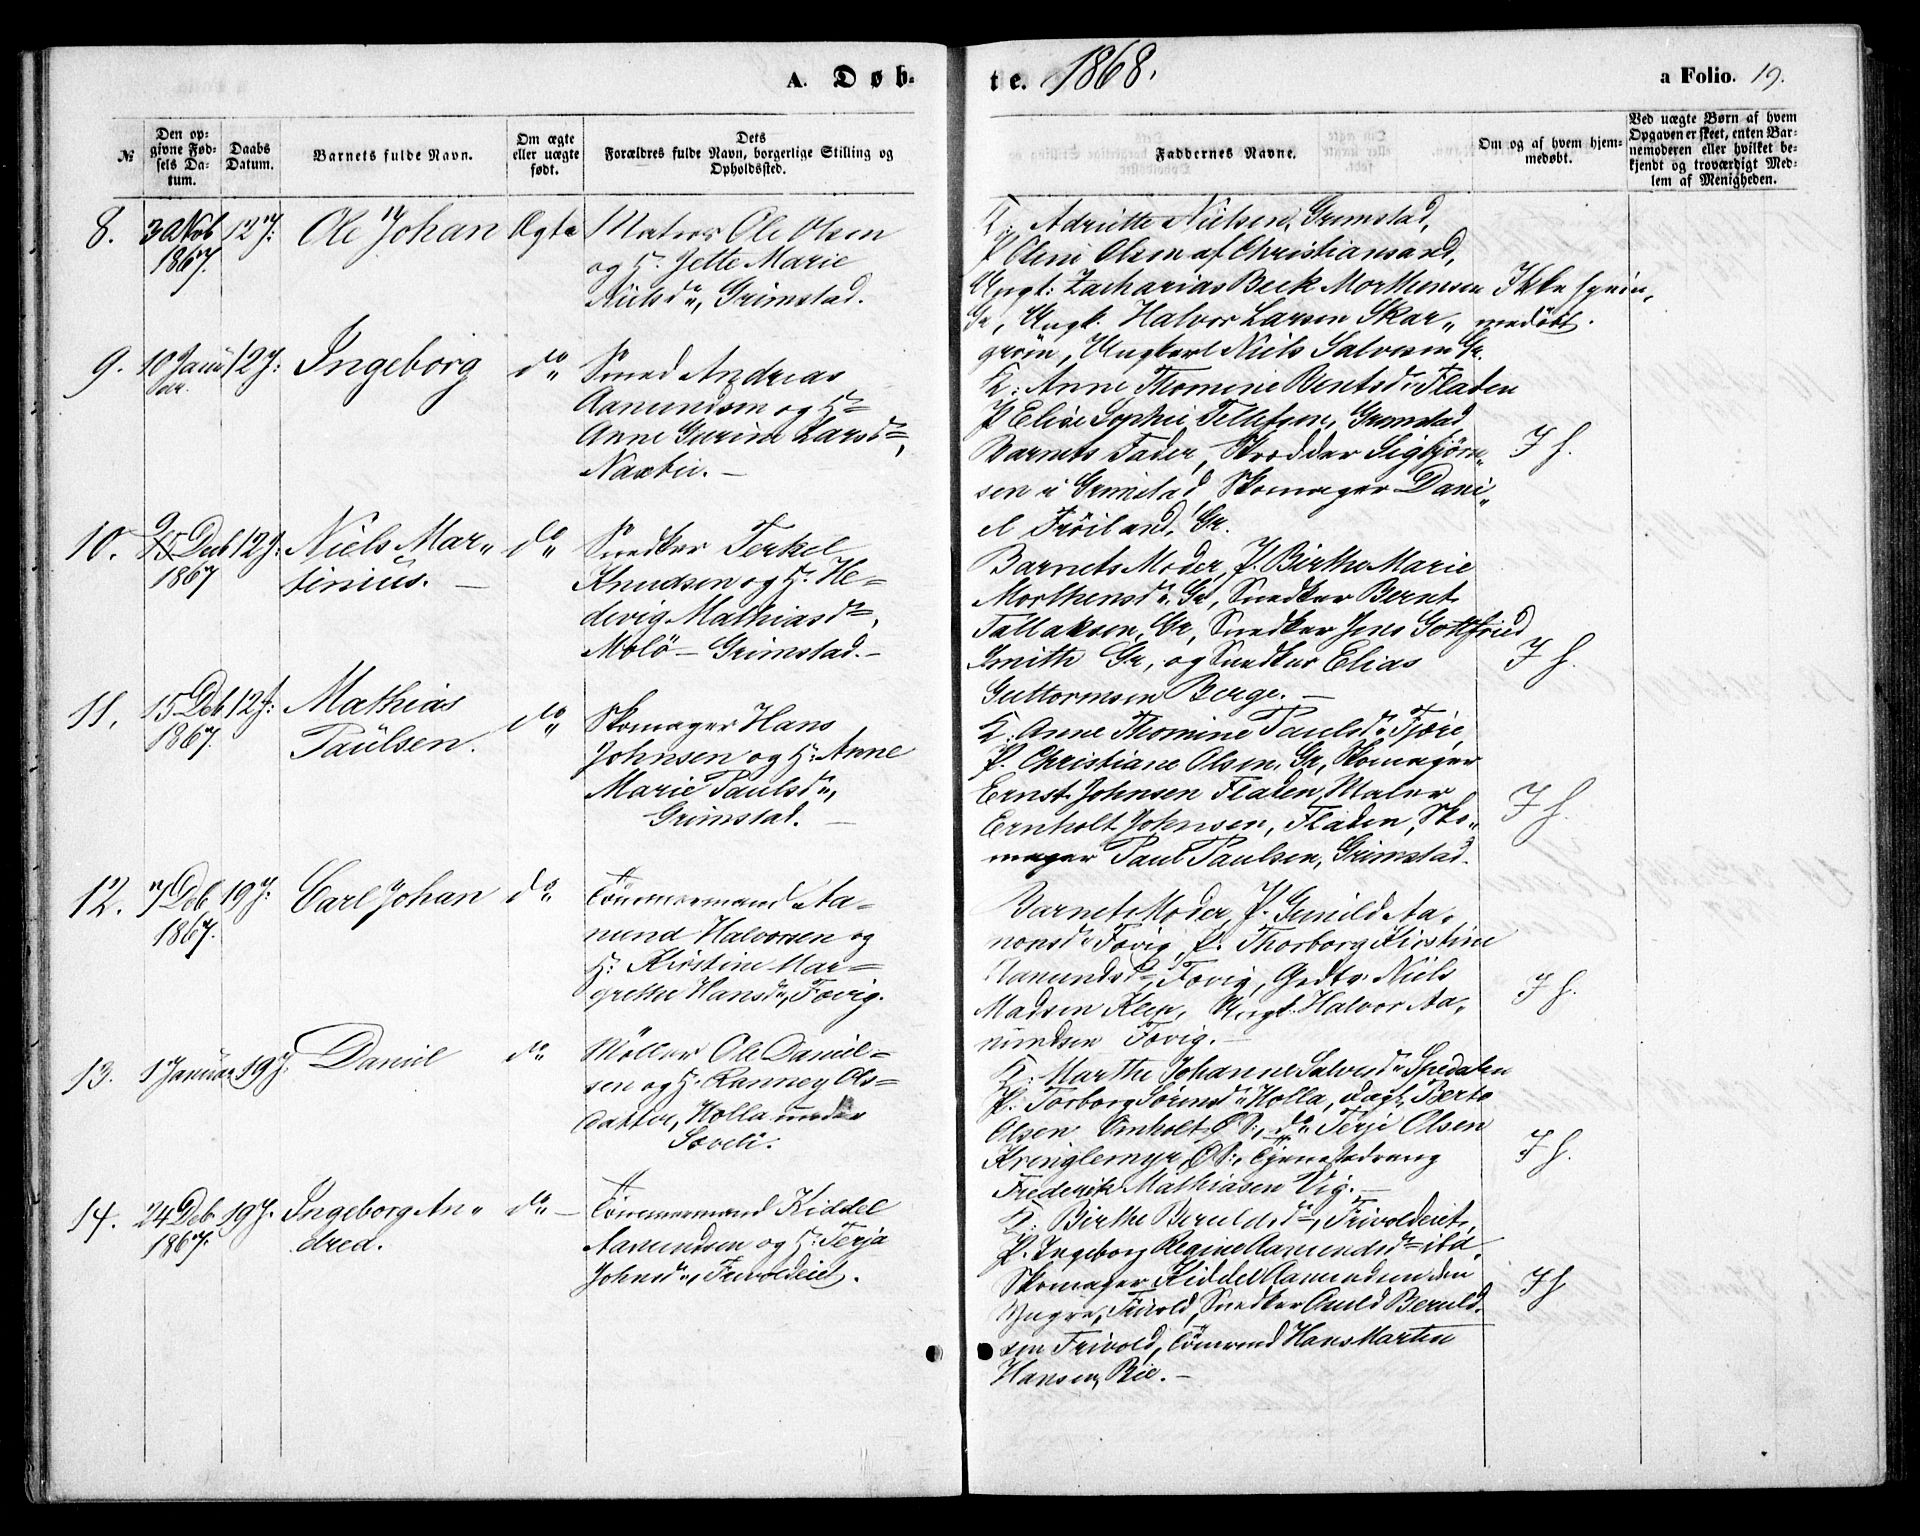 A. Døb-
te. 1868.
a Folio. 19.
№
Den op-
givne Fød-
sels Da-
tum.
Daabs
Datum.
Barnets fulde Navn.
Om ægte
eller uægte
født.
Dets
Forældres fulde Navn, borgerlige Stilling og
Opholdssted.
Faddernes Navne.
Om og af hvem hjem-
medøbt.
Ved uægte Børn af hvem
Opgaven er skeet, enten Bar-
nemoderen eller hvilket be-
kjendt og troværdigt Med-
lem af Menigheden.
8.
30 Nov
1867.
12 J:
Ole Johan
Ægte
Matros Ole Olsen
og H. Jette Marie
Nielsd., Grimstad.
K: Adriette Nielsen, Grimstad,
P Oleni Olsen af Christiansand,
Ungk: Zacharias Beck Morthensen
Gr, Ungk. Halvor Larsen Skar-
gröm, Ungkarl Niels Salvesen Gr.
Ikke hjem-
medøbt.
9.
10 Janu
ar.
12 J:
Ingeborg
do
Smed Andreas
Aanundsen og H
Anne Gurine Larsd,
Naxtie. —
K: Anne Thomine Berntsd Fladen
P Elise Sophie Tellefsen, Grimstad
Barnets Fader, Skrædder Sigbjørn-
sen i Grimstad Skomager Dani-
el Fröiland, Gr.
I h.
10.
9
15 Deb
1867
12 J:
Niels Mar-
tinius. —
do
Snedker Terkel
Knudsen og H. He-
devig Mathiasd,
Molö – Grimstad. –
Barnets Moder, P. Birthe Marie
Morthensd. Gr, Snedker Bernt
Tallaksen, Gr, Snedker Jens Gottfried
Smith Gr, og Snedker Elias
Guttormsen Berge. —
I h.
11.
15 Deb
1867.
12 J:
Mathias
Paulsen.
do
Skomager Hans
Johnsen og H: Anne
Marie Paulsd.,
Grimstad. —
K: Anne Thomine Paulsd. Fjöre,
P. Christiane Olsen, Gr, Skomager
Ernst Johnsen Fladen, Maler
Ernholt Johnsen, Fladen, Sko-
mager Paul Paulsen, Grimstad.
I h.
12.
7 Deb
1867.
19 J:
Carl Johan
do
Tömmermand Aa-
nund Halvorsen og
H: Kirstine Mar-
grethe Hansd., Fovig.
Barnets Moder, P. Gunild Aa-
nonsd. Fovig, P. Thorborg Kirstine
Aanundsd, Fovig, Gdbr. Niels
Madsen Klep, Ungk. Halvor Aa-
nundsen Fovig. —
I h.
13.
1 Januar
19 J.
Daniel
do
Möller Ole Daniel-
sen og H. Ranney Ols-
datter, Holla under
Sæveli.
K: Marthe Johanne Salvesd. Spedalen
P. Torborg Sörensd. Holla, Dagl. Berte
Olsen Omholt, Ø S:, do Terje Olsen
Kringlemyr, Ø S:, Tjenestedreng
Frederik Mathiasen Vig. —
I h.
14.
24 Deb
1867.
19 J.
Ingeborg An-
drea.
do –
Tömmermand Kiddel
Aanundsen og H: Terja
Johnsd., Frivoldeiet.
K: Birthe Beruldsd, Frivoldeiet,
P. Ingeborg Regine Aanundsd ibd,
Skomager Kiddel Aanundsen den
Yngre, Frivold, Snedker Omild Beruld-
sen Frivold, Tömmermd Hans Martin
Hansen, Bie. —
I h.